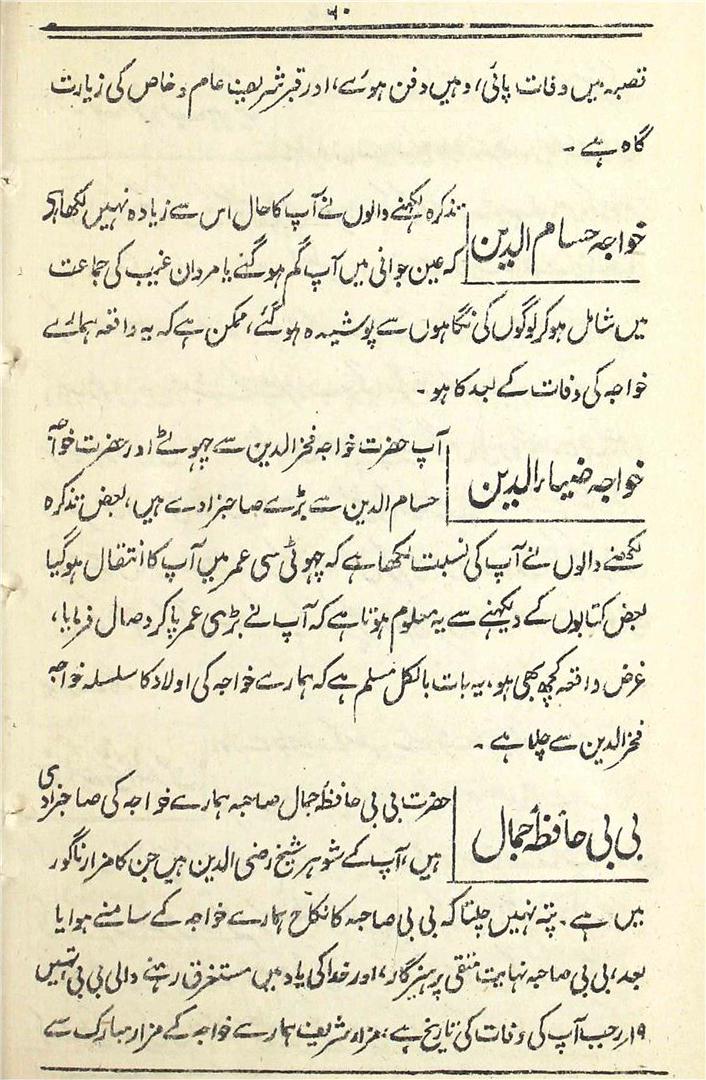 ٦٠
قصبہ میں وفات پائی، وہیں دفن ہوئے، اور قبر شریف عام و خاص کی زیارت
گاہ ہے ۔
خواجہ حسام الدین
تذکرہ لکھنے والوں نے آپ کا حال اس سے زیادہ نہیں لکھا ہی
کہ عین جوانی میں آپ گم ہو گئے یا مردان غیب کی جماعت
میں شامل ہو کر لوگوں کی نگاہوں سے پوشیدہ ہو گئے، ممکن ہے کہ یہ واقعہ ہمارے
خواجہ کی وفات کے بعد کا ہو ۔
خواجہ ضیاء الدین
آپ حضرت خواجہ فخر الدین سے چھوٹے اور حضرت خواجہ
حسام الدین سے بڑے صاحبزادے ہیں، بعض تذکرہ
لکھنے والوں نے آپ کی نسبت لکھا ہے کہ چھوٹی سی عمر میں آپ کا انتقال ہو گیا
بعض کتابوں کے دیکہنے سے یہ معلوم ہوتا ہے کہ آپ نے بڑی عمر پا کر وصال فرمایا،
غرض واقعہ کچھ بھی ہو، یہ بات بالکل مسلم ہے کہ ہمارے خواجہ کی اولاد کا سلسلہ خواجہ
فخر الدین سے چلا ہے ۔
بی بی حافظہ جمال
حضرت بی بی حافظہ جمال صاحبہ ہمارے خواجہ کی صاحبزادی
ہیں، آپ کے شوہر شیخ رضی الدین ہیں جن کا مزار ناگور
میں ہے ۔ پتہ نہیں چلتا کہ بی بی صاحبہ کا نکاح ہمارے خواجہ کے سامنے ہوا یا
بعد، بی بی صاحبہ نہایت متقی پرہیزگار، اور خدا کی یاد میں مستغرق رہنے والی بی بی تہیں
۱۹ رجب آپ کی وفات کی تاریخ ہے، مزار شریف ہمارے خواجہ کے مزار مبارک سے